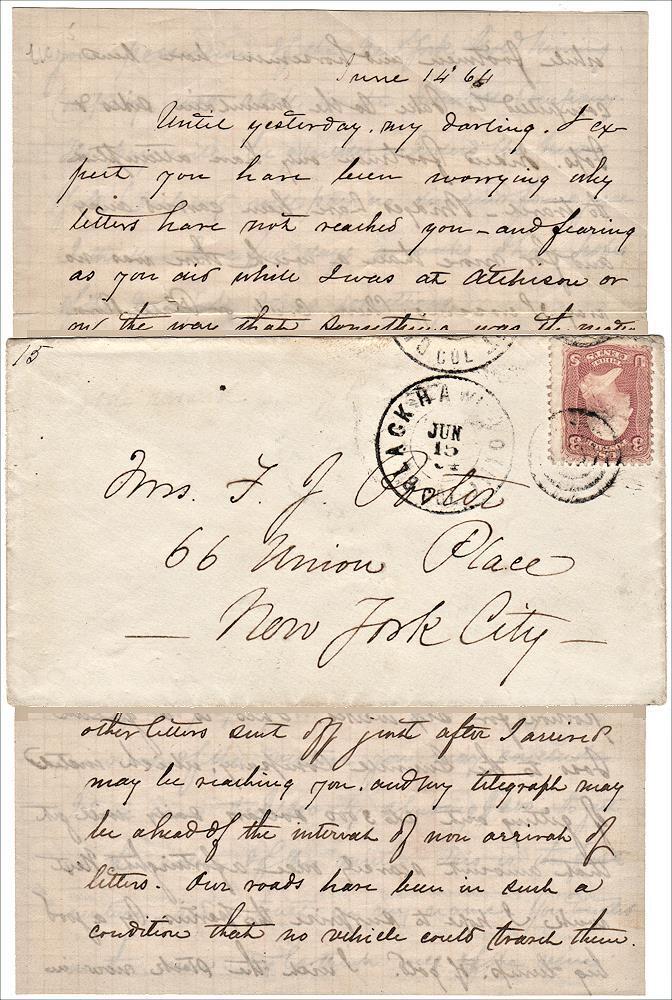 June 14 '64
Until yesterday, my darling. I ex-
pect you have been worrying why
letters have not reached you – and fearing
as you did while I was at Atchison or
on the way that something was the matter
15
COL
BLACK HAWK
JUN
15
Mrs. F. J.
66 Union Place
— New York City —
other letters sent off just after I arrived
may be reaching you. and my telegraph may
be ahead of the interval of non arrival of
letters. Our roads have been in such a
condition that no vehicle could travel them.